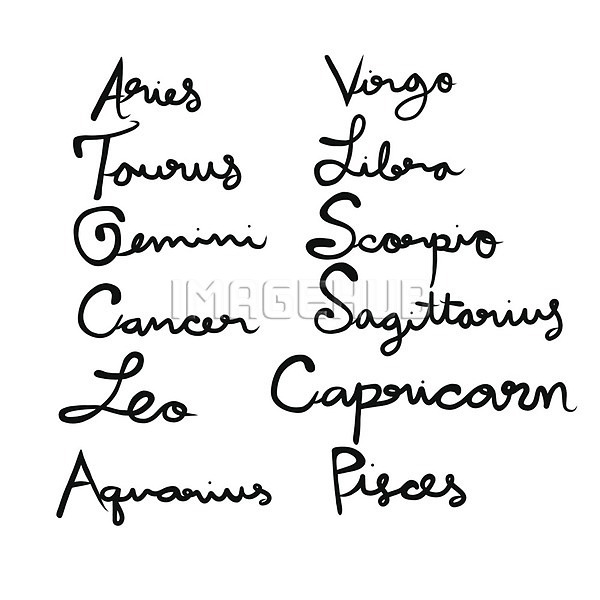 Aries
Taurus
Gemini
Cancer
Leo
Aquarius
Virgo
Libra
Scorpio
Sagittarius
Capricorn
Pisces
IMAGEHUB